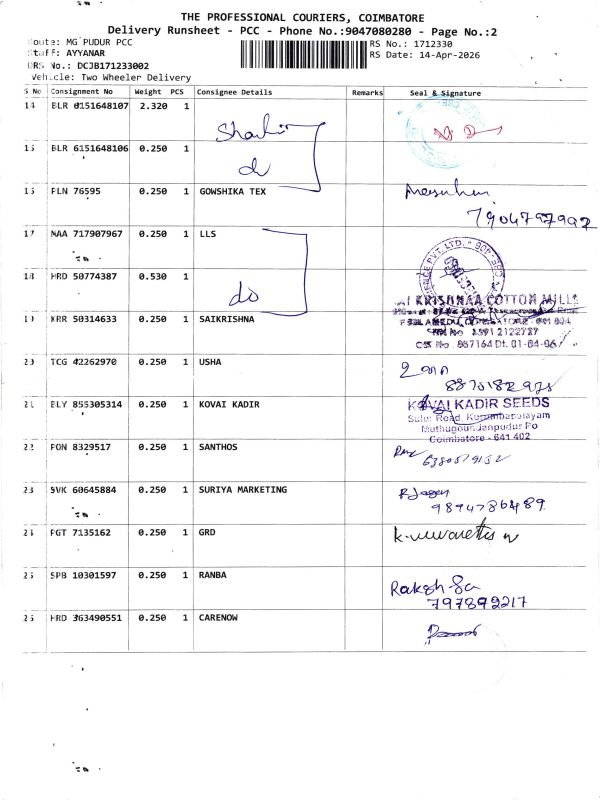 THE PROFESSIONAL COURIERS, COIMBATORE
Delivery Runsheet - PCC - Phone No.:9047080280 - Page No.:2
Route: MG PUDUR PCC
RS No.: 1712330
Staff: AYYANAR
RS Date: 14-Apr-2026
DRS No.: DCJB171233002
Vehicle: Two Wheeler Delivery
S No Consignment No Weight PCS Consignee Details Remarks Seal & Signature
14 BLR 0151648107 2.320 1
15 BLR 6151648106 0.250 1
do
16 PLN 76595 0.250 1 GOWSHIKA TEX
7904797992
17 MAA 717907967 0.250 1 LLS
18 HRD 50774387 0.530 1
do
KRISHNAA COTTON MILLS
19 KRR 50314633 0.250 1 SAIKRISHNA
CST No 887164 Dt. 01-04-06
20 TCG 42262970 0.250 1 USHA
21 ELY 855305314 0.250 1 KOVAI KADIR
KOVAI KADIR SEEDS
Sulur Road, Kurumbapalayam
Muthugoundanpudur Po
Coimbatore - 641 402
22 PON 8329517 0.250 1 SANTHOS
23 SVK 60645884 0.250 1 SURIYA MARKETING
9894786489
24 PGT 7135162 0.250 1 GRD
25 SPB 10301597 0.250 1 RANBA
797892217
26 HRD 363490551 0.250 1 CARENOW